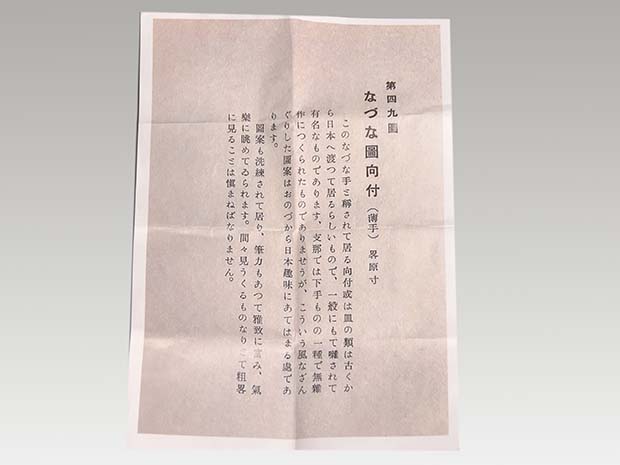 第四九圖
なづな圖向付（薄手）畧原寸
このなづな手と稱されて居る向付或は皿の類は古くか
ら日本へ渡つて居るらしいもので、一般にもて囃されて
有名なものであります、支那では下手ものの一種で無雜
作につくられたものでありませうが、こういう風なざん
ぐりした圖案はおのづから日本趣味にあてはまる處であ
ります。
圖案も洗練されて居り、筆力もあつて雅致に富み、氣
樂に眺めてゐられます。間々見うくるものなりとて粗畧
に見ることは愼まねばなりません。